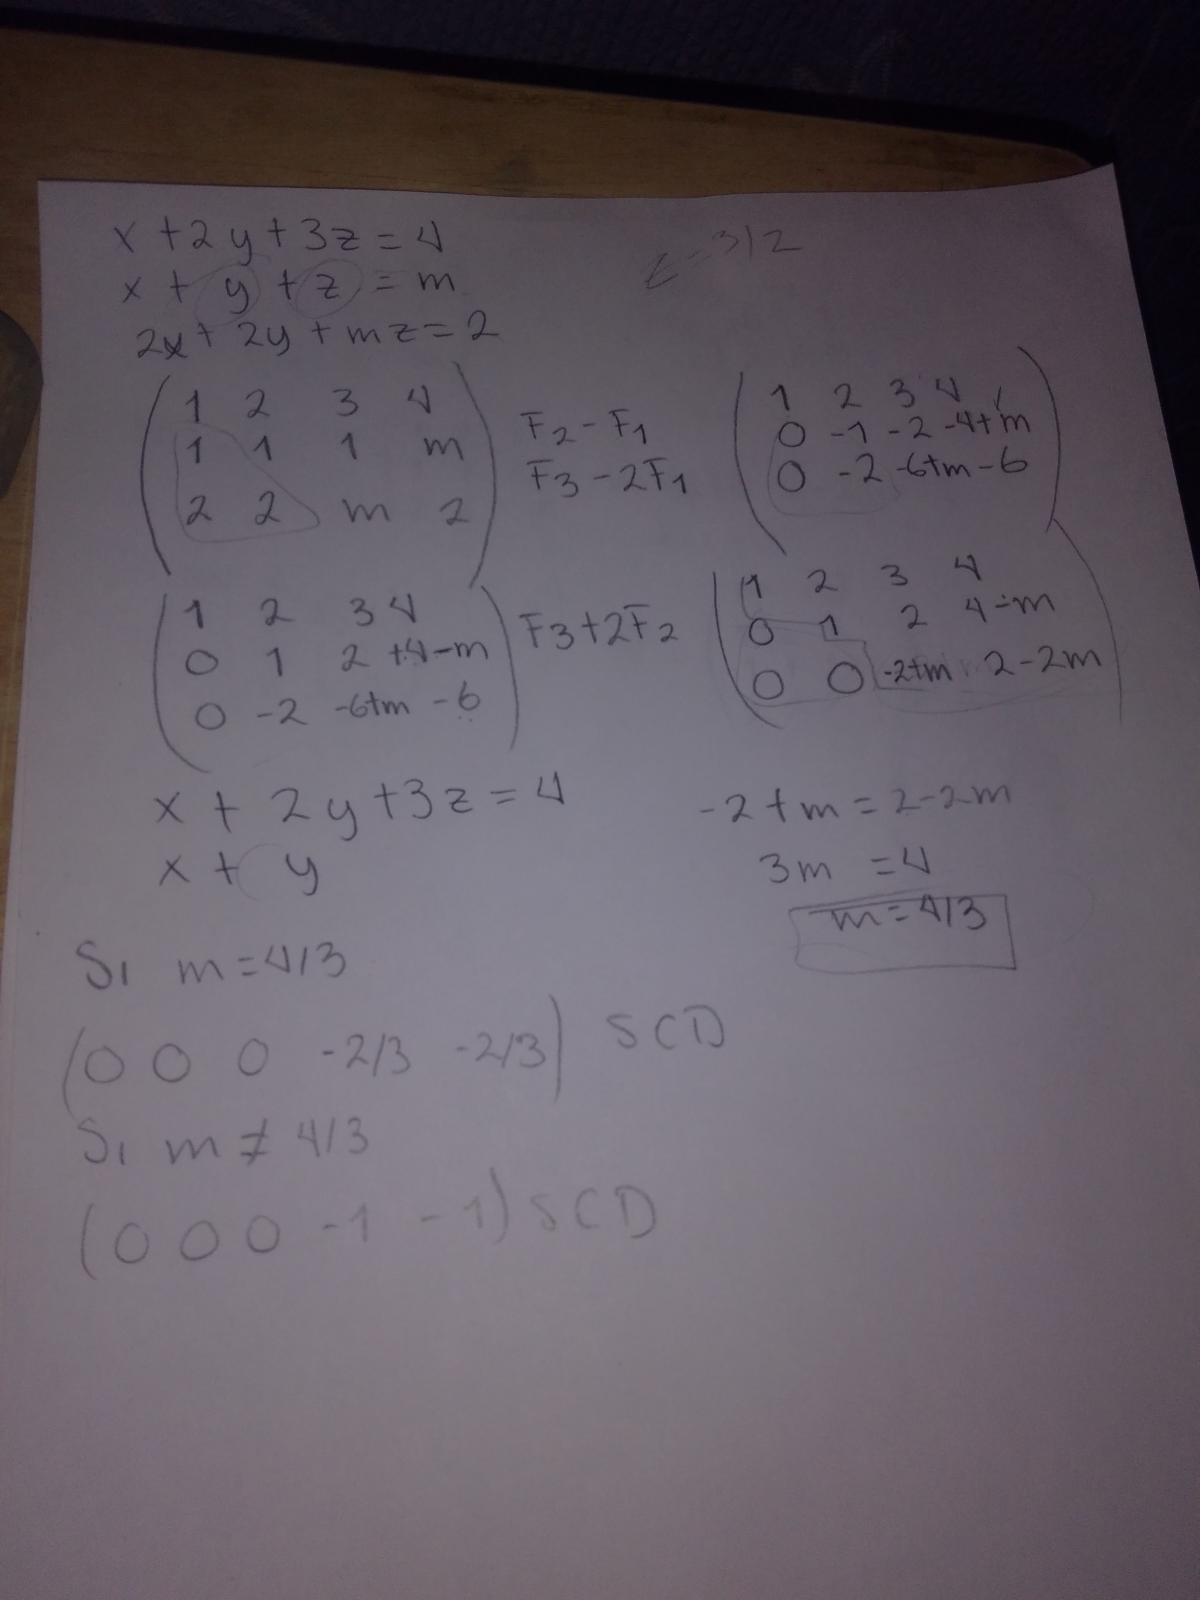 x + 2y + 3z = 4
z = 3/2
x + y + z = m
2x + 2y + mz = 2
1 2 3 4
1 1 1 m
2 2 m 2
F2 - F1
F3 - 2F1
1 2 3 4
0 -1 -2 -4+m
0 -2 -6+m -6
1 2 3 4
0 1 2 +4-m
0 -2 -6+m -6
F3+2F2
1 2 3 4
0 1 2 4-m
0 0 -2+m 2-2m
x + 2y + 3z = 4
x + y
-2+m = 2-2m
3m = 4
m = 4/3
Si m = 4/3
(0 0 0 -2/3 -2/3) SCD
Si m ≠ 4/3
(0 0 0 -1 -1) SCD